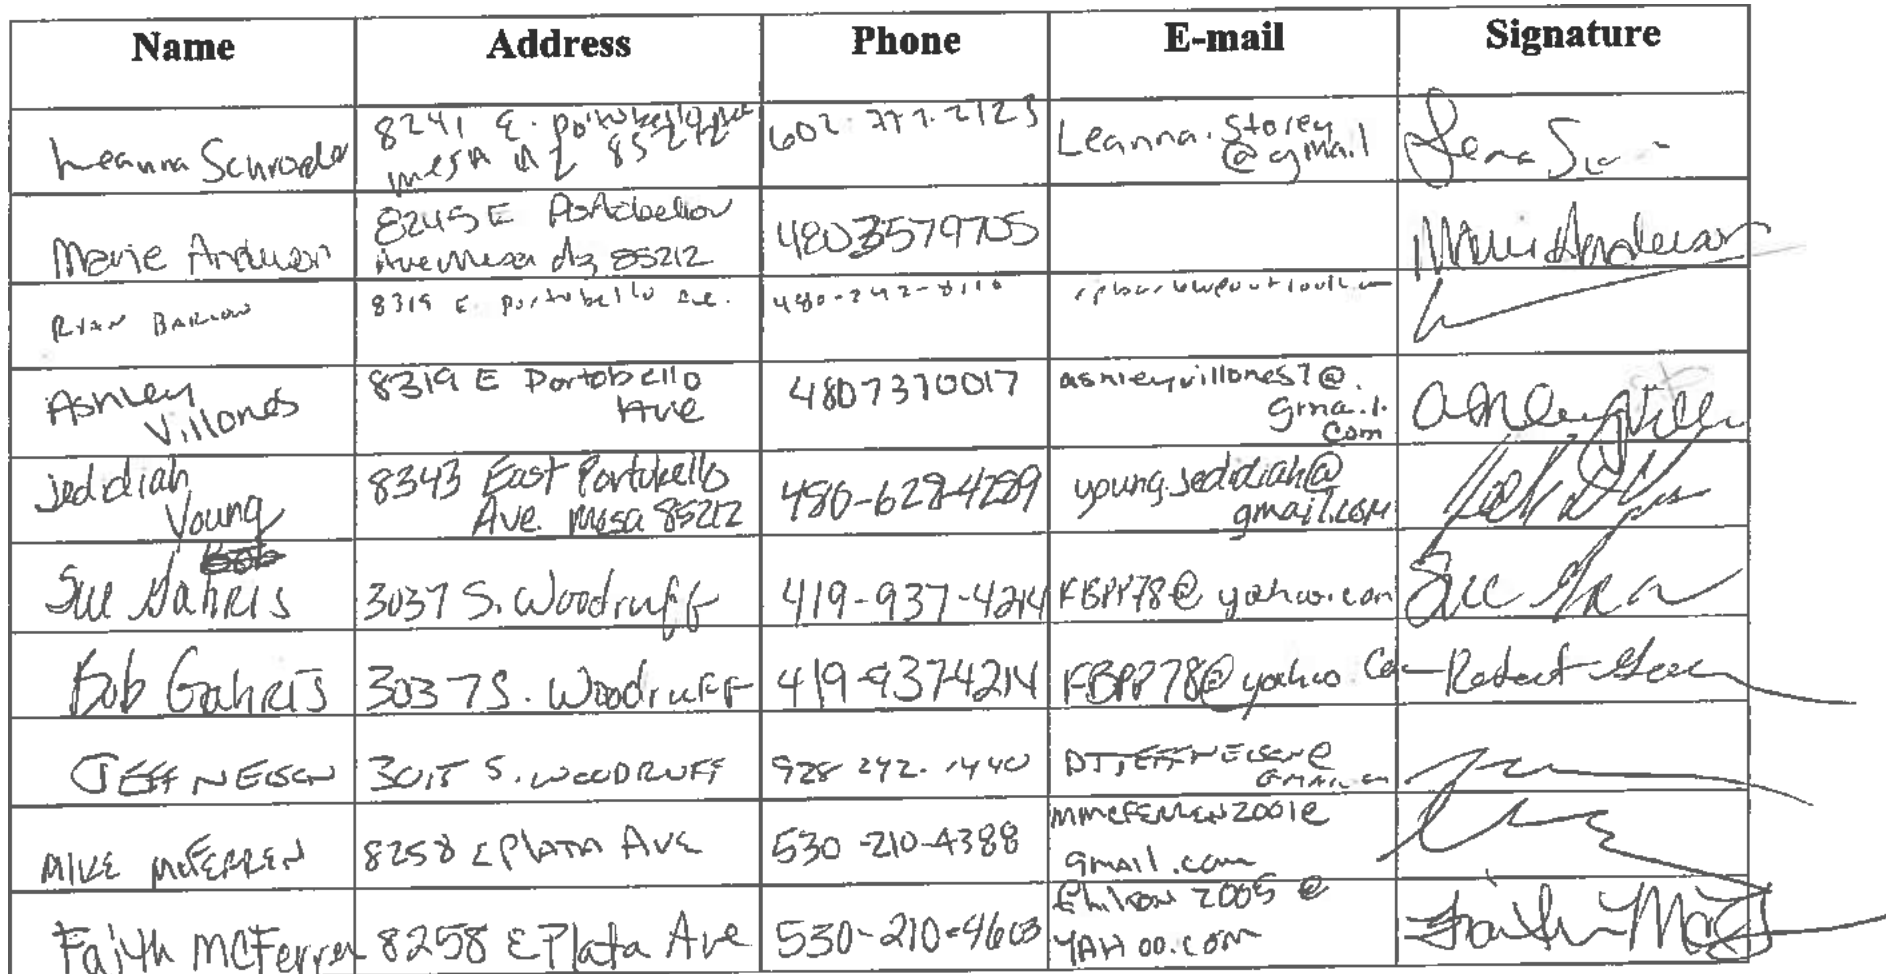 Name Address Phone E-mail Signature
Leanna Schroeder 8241 E. Portobello Ave 602.777.2123 Leanna.Storey
Mesa AZ 85212 @gmail
8245 E Portobello
Marie Anderson Ave Mesa Az 85212 4803579705 Marie Anderson
Ryan Barlow 8319 E Portobello Ave. 480-242-8116
Ashley 8319 E Portobello 4807370017 ashleyvillones7@.
Villones Ave gmail.
com
jeddiah 8343 East Portobello 480-628-4289 young.jeddiah@
Young Ave. Mesa 85212 gmail.com
Bob
Sue Gahris 3037 S. Woodruff 419-937-4214 FBPP78@yahoo.com Sue
Bob Gahris 3037 S. Woodruff 419-937-4214 FBPP78@yahoo Com Robert
JEFF NELSON 3015 S. WOODRUFF 928 242. 1440 DJJEFFNELSON@
GMAIL.com
MIKE McFERREN 8258 E Plata Ave 530-210-4388 MMCFERREN2001@
gmail.com
Faith McFerren 8258 E Plata Ave 530-210-4603 2005@
YAHOO.COM Faith